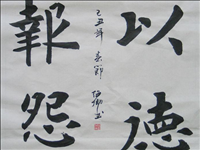 以德
報怨
己丑年 春節